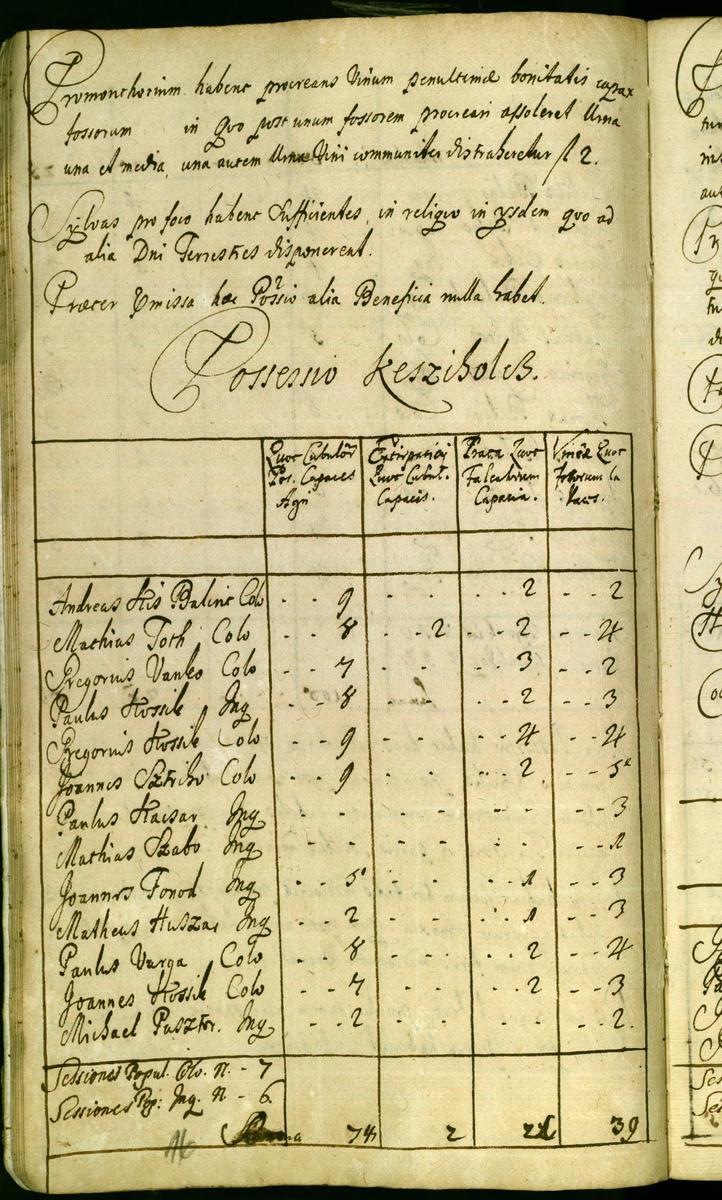 Promonthorium habent procreans Vinum penultimæ bonitatis capax
fossorum in quo post unum fossorem procreari assoleret Urna
una et media, una autem Urna Vini communiter distraheretur fl 2.
Sylvas pro foco habent sufficientes, in reliquo in ysdem quo ad
alia Dni Terrestres disponerent.
Præter præmissa hæc Possio alia Beneficia nulla habet.
Possessio Keszihólcz.
Quot Cubulor Pos. Capaces Agri
Extirpaticy Quot Cubul. Capacis.
Prata Quot Falcatorum Capacia.
Vineæ Quot Fossorum Ca paces.
Andreas Kis Balint Colo - - 9 - - - - 2 - - 2
Mathias Toth Colo - - 8 - - 2 - - 2 - - 4
Gregorius Vanko Colo - - 7 - - - - 3 - - 2
Paulus Kossik Inq - - 8 - - - - 2 - - 3
Gregorius Kossik Colo - - 9 - - - - 4 - - 4
Joannes Colo - - 9 - - - - 2 - - 5
Paulus Inq - - - - - - - - - 3
Mathias Szabo Inq - - - - - - - - - 1
Joannes Fonod Inq - - 5 - - - - 1 - - 3
Matheus Huszar Inq - - 2 - - - - 1 - - 3
Paulus Varga Colo - - 8 - - - - 2 - - 4
Joannes Kossik Colo - - 7 - - - - 2 - - 3
Michael Pasztor. Inq - - 2 - - - - - - 2.
Sessiones Popul. Clo. N. - 7
Sessiones Pop: Inq. N - 6
Summa 74 2 21 39